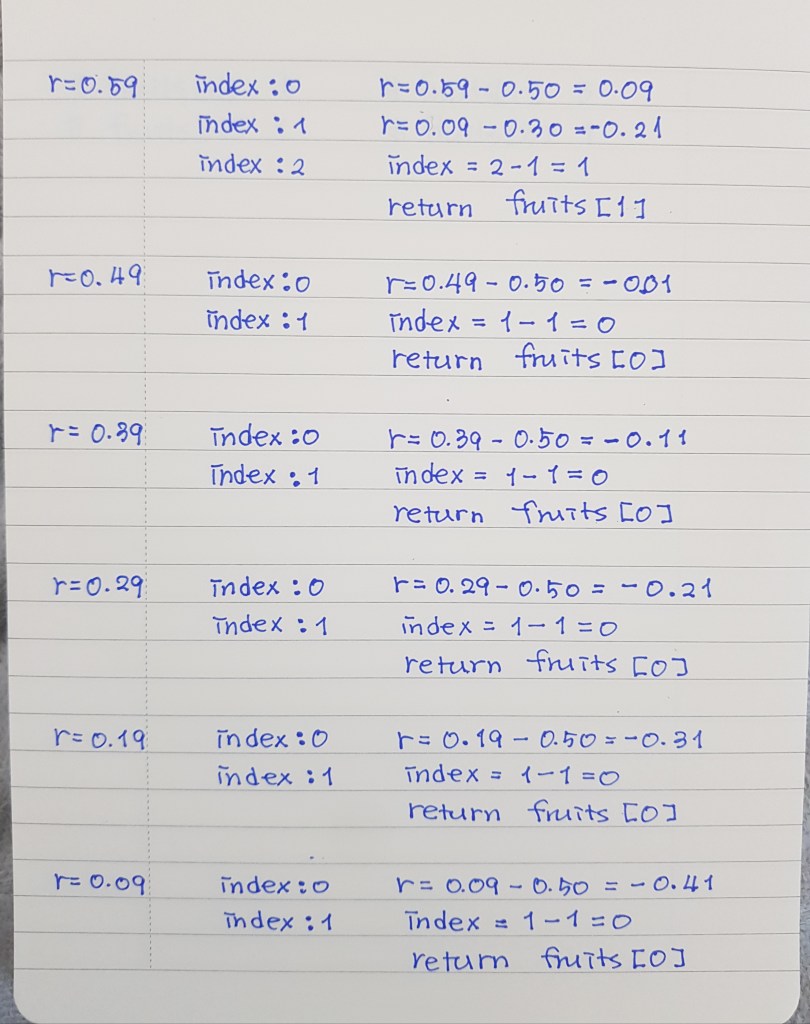 r=0.59 index:0 r=0.59 - 0.50 = 0.09
index:1 r=0.09 - 0.30 = -0.21
index:2 index = 2-1 = 1
return fruits [1]
r=0.49 index:0 r=0.49 - 0.50 = -0.01
index:1 index = 1-1 = 0
return fruits [0]
r=0.39 index:0 r=0.39 - 0.50 = -0.11
index:1 index = 1-1=0
return fruits [0]
r=0.29 index:0 r=0.29 - 0.50 = -0.21
index:1 index = 1-1=0
return fruits [0]
r=0.19 index:0 r=0.19 - 0.50 = -0.31
index:1 index = 1-1=0
return fruits [0]
r=0.09 index:0 r=0.09 - 0.50 = -0.41
index:1 index = 1-1=0
return fruits [0]